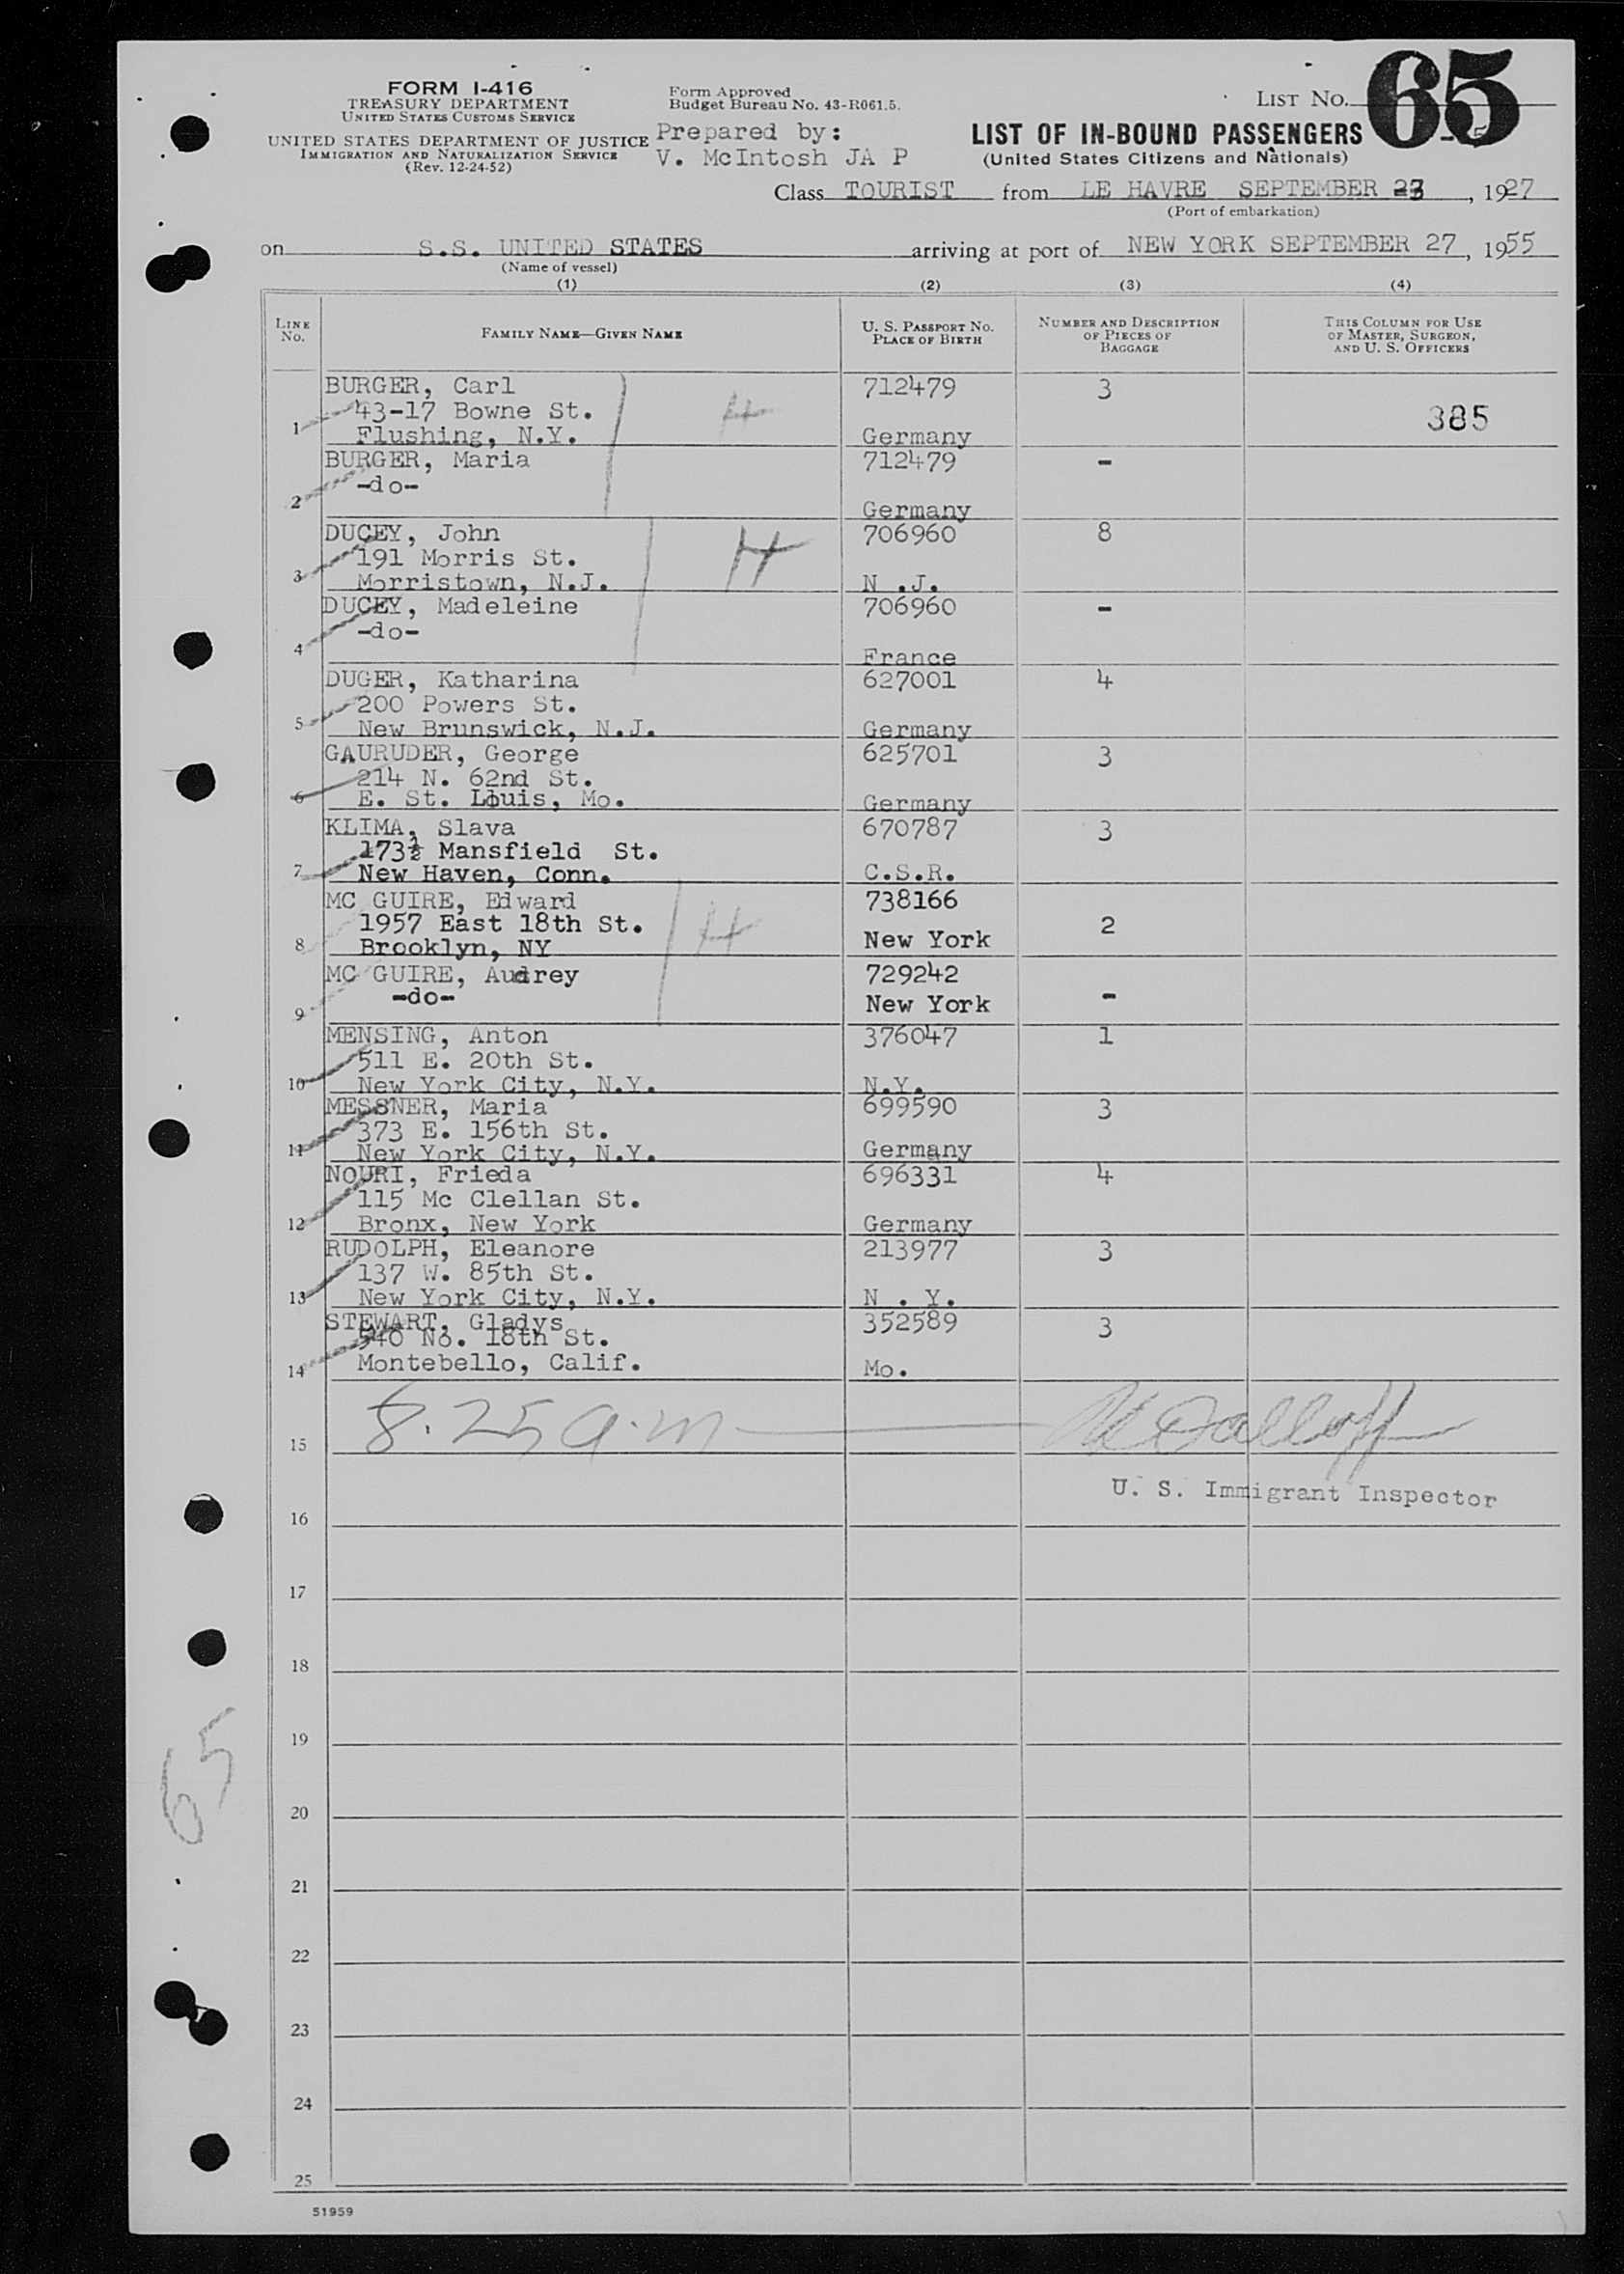 FORM I-416
TREASURY DEPARTMENT
UNITED STATES CUSTOMS SERVICE
UNITED STATES DEPARTMENT OF JUSTICE
IMMIGRATION AND NATURALIZATION SERVICE
(Rev. 12-24-52)
Form Approved
Budget Bureau No. 43-R061.5.
Prepared by:
V. McIntosh JA P
LIST NO. 65
LIST OF IN-BOUND PASSENGERS
(United States Citizens and Nationals)
Class TOURIST from LE HAVRE SEPTEMBER 23, 1927
(Port of embarkation)
on S.S. UNITED STATES arriving at port of NEW YORK SEPTEMBER 27, 1955
(Name of vessel)
(1) (2) (3) (4)
LINE NO. FAMILY NAME—GIVEN NAME U. S. PASSPORT NO. PLACE OF BIRTH NUMBER AND DESCRIPTION OF PIECES OF BAGGAGE THIS COLUMN FOR USE OF MASTER, SURGEON, AND U. S. OFFICERS
BURGER, Carl 712479 3
43-17 Bowne St. H 385
1 Flushing, N.Y. Germany
BURGER, Maria 712479 -
-do-
2 Germany
DUCEY, John 706960 8
191 Morris St. H
3 Morristown, N.J. N .J.
DUCEY, Madeleine 706960 -
-do-
4 France
DUGER, Katharina 627001 4
200 Powers St.
5 New Brunswick, N.J. Germany
GAURUDER, George 625701 3
214 N. 62nd St.
6 E. St. Louis, Mo. Germany
KLIMA, Slava 670787 3
173½ Mansfield St.
7 New Haven, Conn. C.S.R.
MC GUIRE, Edward 738166
1957 East 18th St. H 2
8 Brooklyn, NY New York
MC GUIRE, Audrey 729242
-do- New York -
9
MENSING, Anton 376047 1
511 E. 20th St.
10 New York City, N.Y. N.Y.
MESSNER, Maria 699590 3
373 E. 156th St.
11 New York City, N.Y. Germany
NOURI, Frieda 696331 4
115 Mc Clellan St.
12 Bronx, New York Germany
RUDOLPH, Eleanore 213977 3
137 W. 85th St.
13 New York City, N.Y. N . Y.
STEWART, Gladys 352589 3
540 No. 18th St.
14 Montebello, Calif. Mo.
8.25 a.m
15
U. S. Immigrant Inspector
16
17
18
19
65
20
21
22
23
24
25
51959